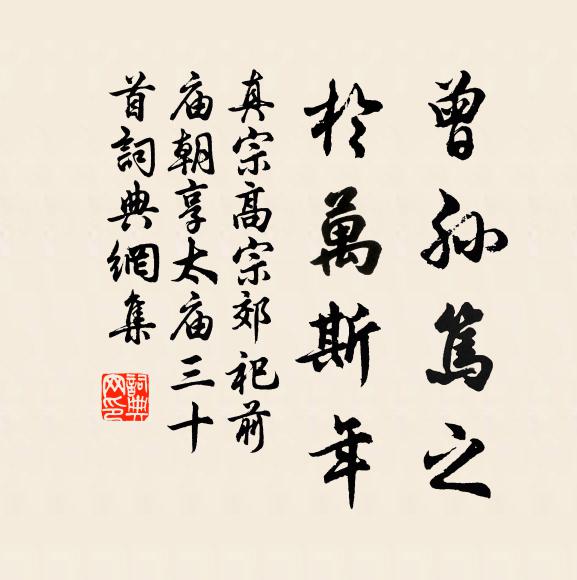 曾孫篤之
於萬斯年
真宗高宗郊祀前
庙朝享太庙三十
首詞典網集
詞典
网印